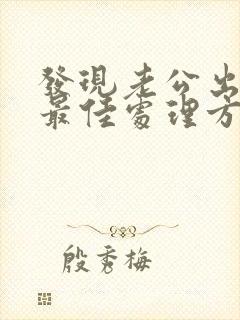 發現老公出
最佳處理方
殷秀梅